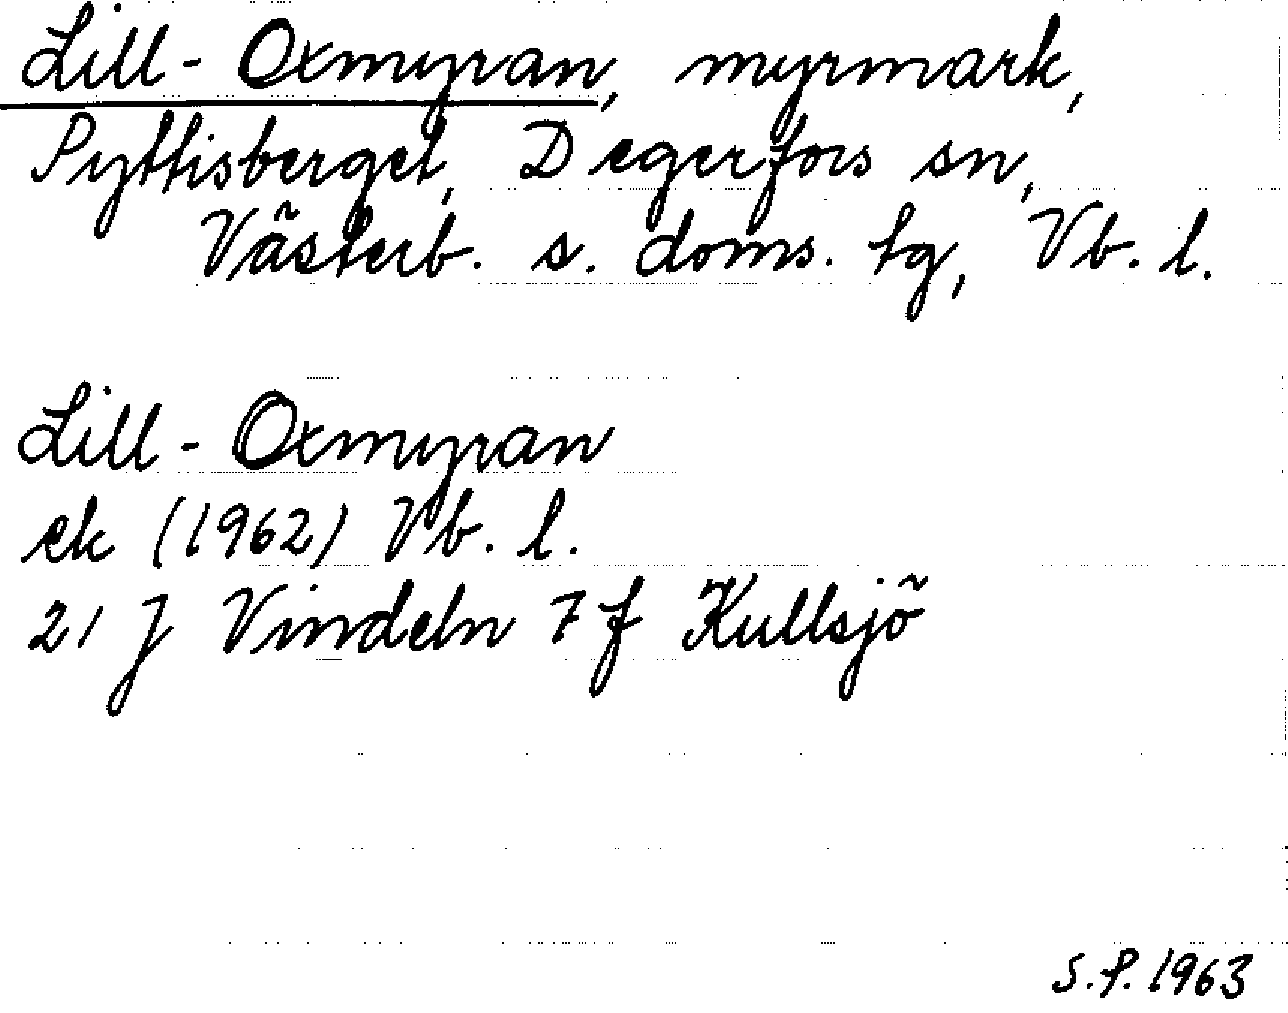 Lill-Oxmyran, myrmark,
Pyttisberget, Degerfors sn,
Västerb. s. doms. tg, Vb. l.
Lill-Oxmyran
ek (1962) Vb. l.
21 J Vindeln 7 f Kullsjö
S.P. 1963